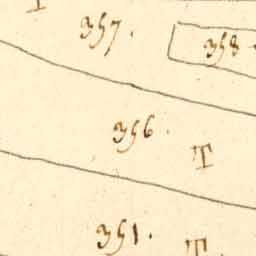 T
357.
358.
356.
T
351.
T